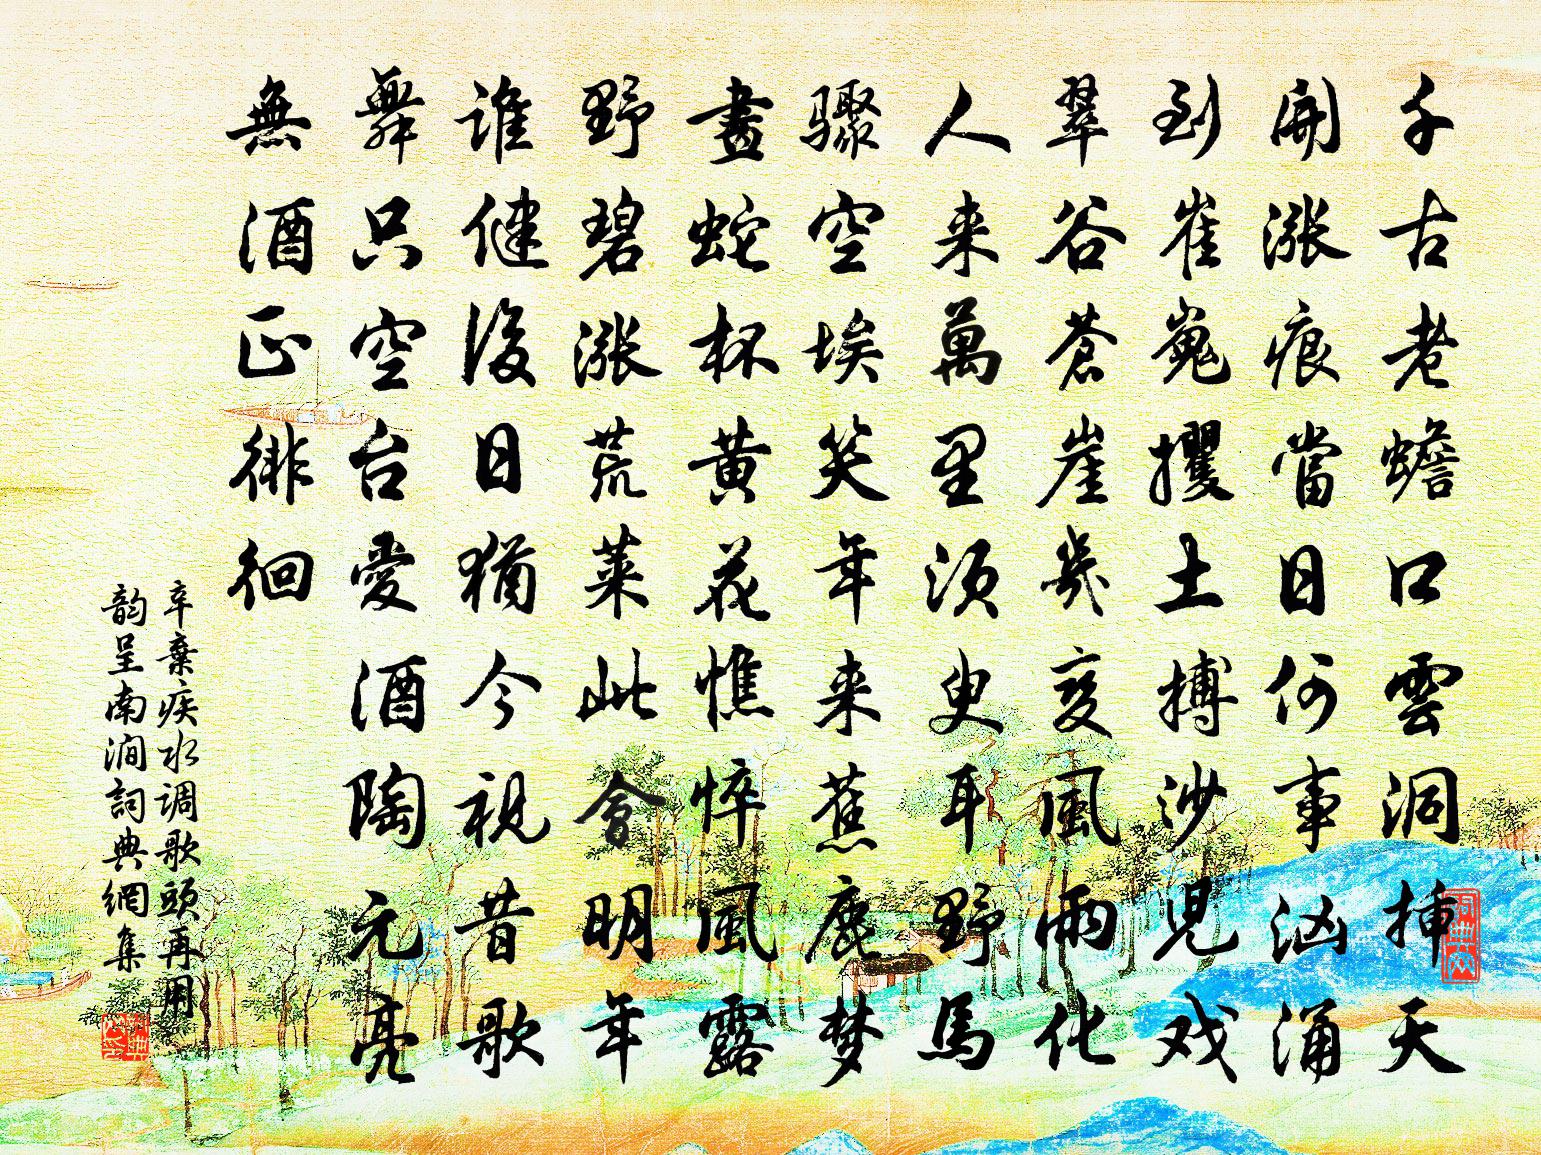 千古老蟾口雲洞挿天
開漲痕當日何事洶涌
到崔嵬攫土搏沙児戏
翠谷蒼崖幾变風雨化
人来萬里須臾耳野馬
驟空埃笑年来蕉鹿梦
畫蛇杯黄花憔悴風露
野碧漲荒萊此會明年
誰健後日猶今視昔歌
舞只空台愛酒陶元亮
無酒正徘徊
辛棄疾水调歌頭再用
韵呈南澗詞典網集